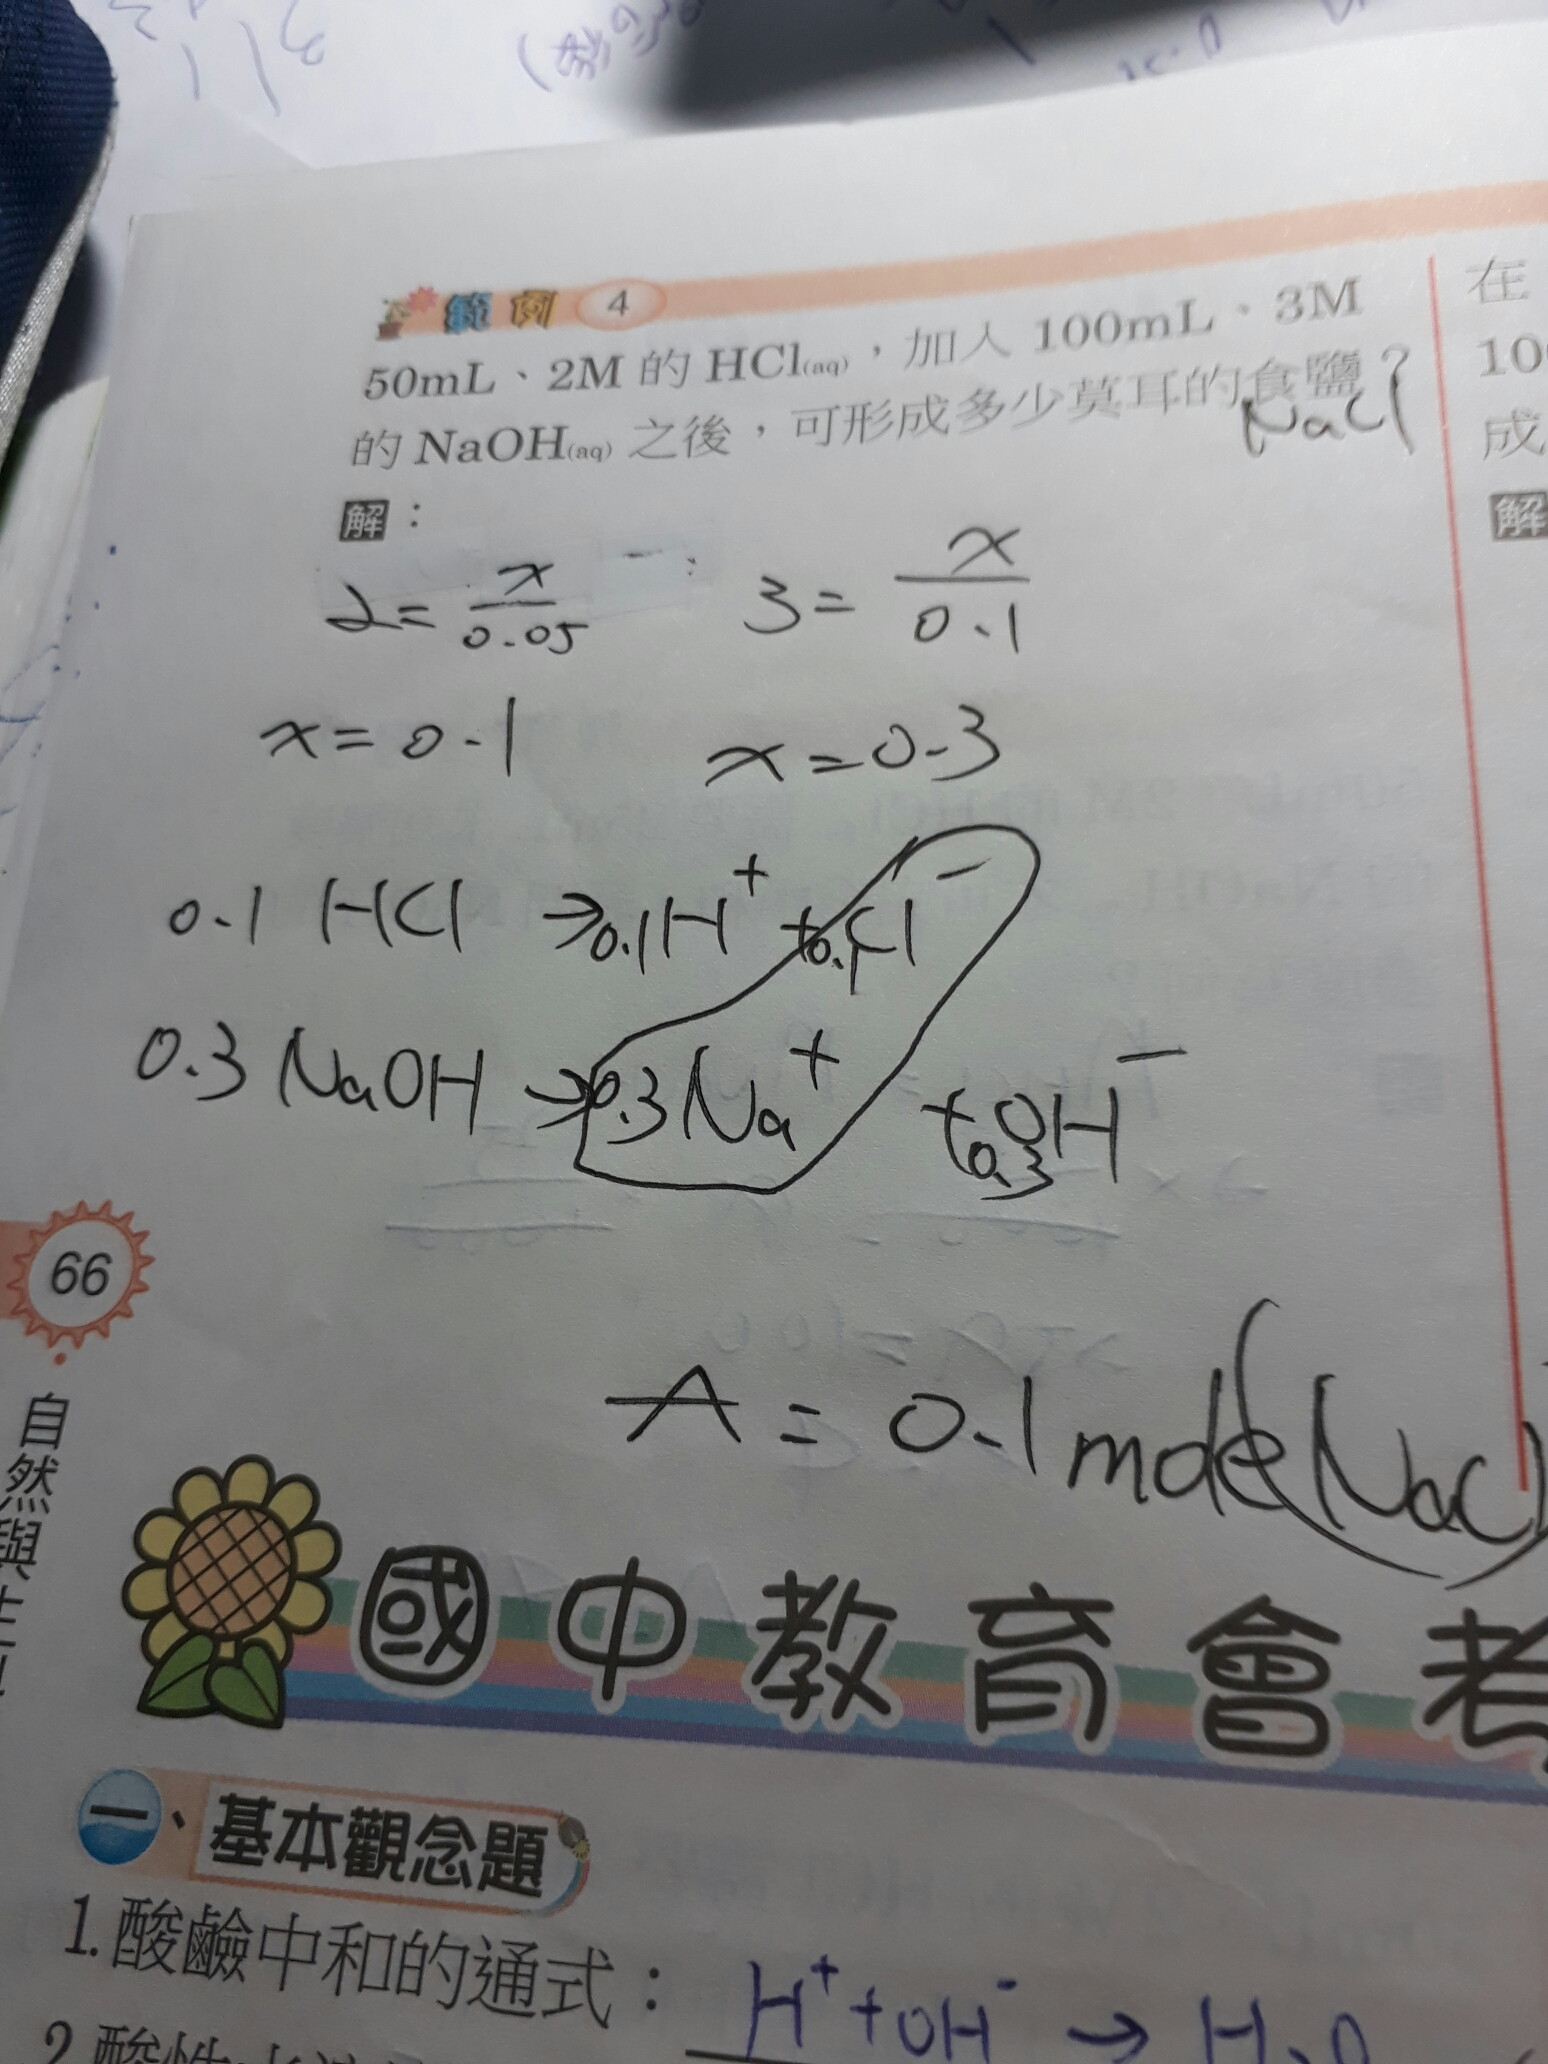 範例 4
50mL、2M 的 HCl(aq)，加入 100mL、3M
的 NaOH(aq) 之後，可形成多少莫耳的食鹽？
NaCl
解：
2 = x/0.05 3 = x/0.1
x = 0.1 x = 0.3
0.1 HCl → 0.1H⁺ + 0.1Cl⁻
0.3 NaOH → 0.3Na⁺ + 0.3OH⁻
A = 0.1 mole (NaCl)
66
自然與生
國中教育會考
一、基本觀念題
1. 酸鹼中和的通式： H⁺ + OH⁻ → H₂O
2. 酸性
在
10
成
解